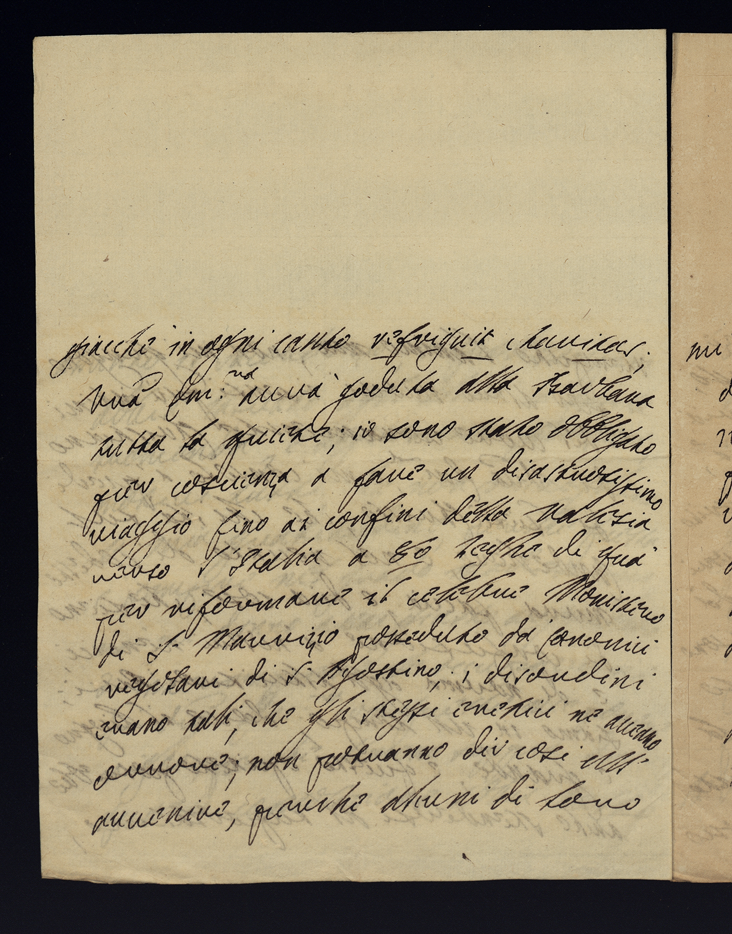 giacchè in ogni canto refriguit charitas.
Vrã Em:za avrà goduta alla
tutta la quiete; io sono stato obbligato
per coscienza a fare un disastrosissimo
viaggio fino ai confini della Valesia
verso l'Italia a 80 leghe di quà
per riformare il celebre Monistero
di S. Maurizio posseduto da canonici
regolari di S. Agostino; i disordini
erano tali, che gli stessi eretici ne aveano
orrore; non potranno dir così all'
avvenire, perchè alcuni di loro